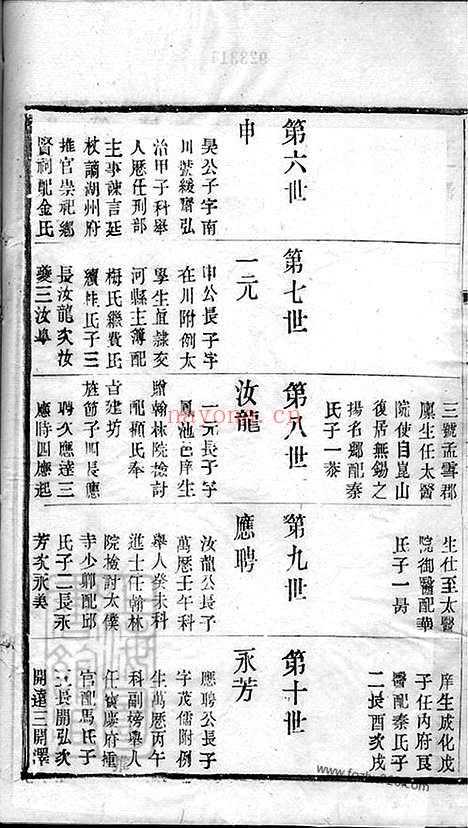 第六世
申
昊公子字南
川號綬齋弘
治甲子科舉
人歷任刑部
主事諫言廷
杖謫湖州府
推官崇祀鄉
賢祠配金氏
第七世
一元
申公長子字
在川附例太
學生直隸交
河縣主簿配
梅氏繼費氏
續桂氏子三
長汝龍次汝
夔三汝阜
三號孟雪郡
庠生任太醫
院使自崑山
復居無錫之
揚名鄉配秦
氏子一棻
第八世
汝龍
一元長子字
鳳池邑庠生
贈翰林院檢討
配顧氏奉
旨建坊
旌節子四長應
聘次應達三
應時四應起
生仕至太醫
院御醫配華
氏子一昺
第九世
應聘
汝龍公長子
萬歷壬午科
舉人癸未科
進士任翰林
院檢討太僕
寺少卿配邱
氏子二長永
芳次永美
庠生成化戊
子任內府良
醫配秦氏子
二長酉次戌
第十世
永芳
應聘公長子
字茂儒附例
生萬歷丙午
科副榜舉人
任寶慶府推
官配馬氏子
三長開弘次
開遠三開澤
nayona.cn
www.fozhu920.com